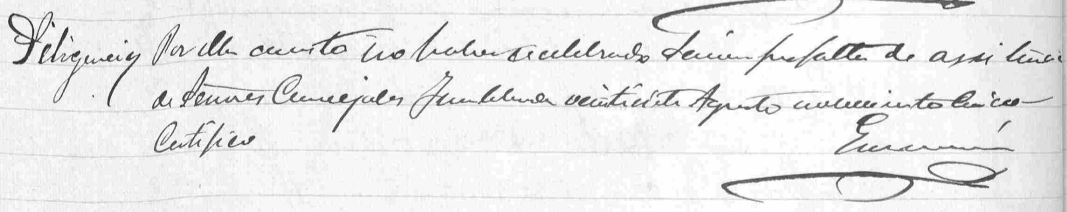 Diligencia Por ella cuento no haberse celebrado Sesion por falta de assistencia
de Señores Concejales veintisiete Agosto novecientos cinco
Certifico